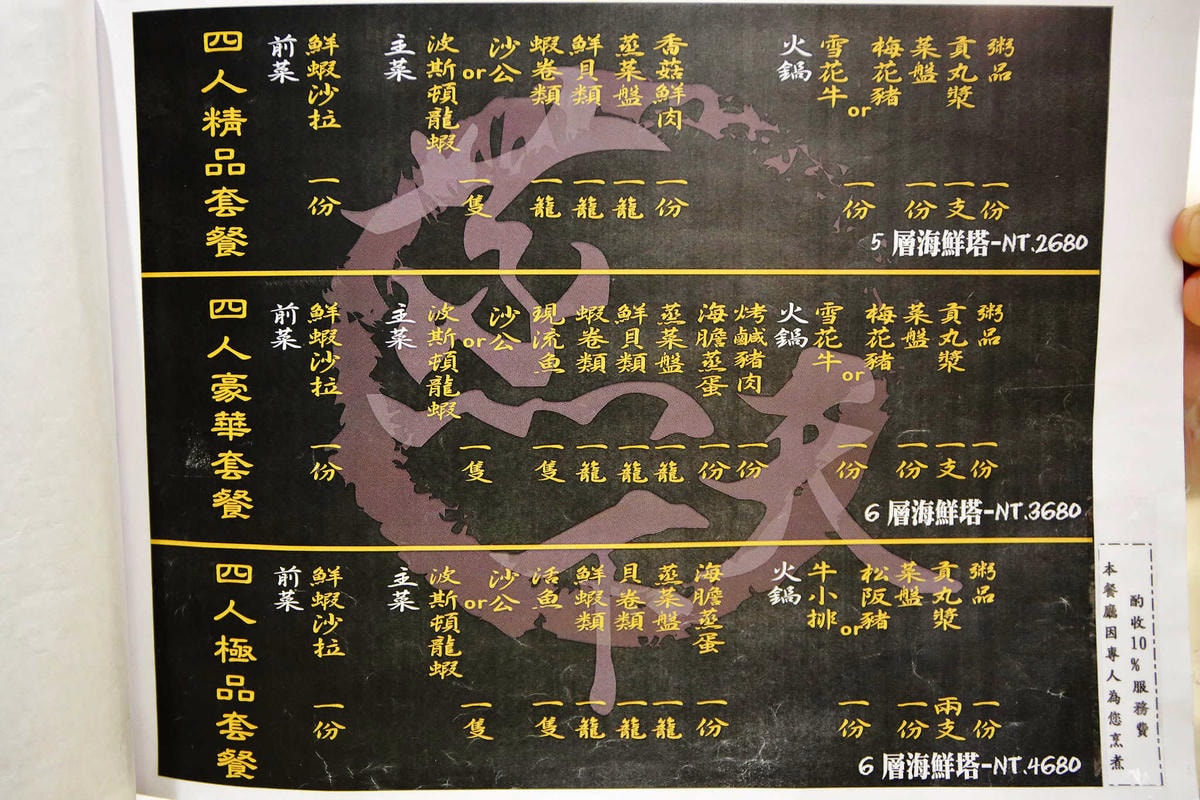 四人精品套餐
前菜
鮮蝦沙拉 一份
主菜
波斯頓龍蝦or沙公 一隻
蝦卷類 一籠
鮮貝類 一籠
蒸菜盤 一籠
香菇鮮肉 一份
火鍋
雪花牛or梅花豬 一份
菜盤 一份
貢丸漿 一支
粥品 一份
5 層海鮮塔-NT.2680
四人豪華套餐
前菜
鮮蝦沙拉 一份
主菜
波斯頓龍蝦or沙公 一隻
現流魚 一隻
蝦卷類 一籠
鮮貝類 一籠
蒸菜盤 一籠
海膽蒸蛋 一份
烤鹹豬肉 一份
火鍋
雪花牛or梅花豬 一份
菜盤 一份
貢丸漿 一支
粥品 一份
6 層海鮮塔-NT.3680
四人極品套餐
前菜
鮮蝦沙拉 一份
主菜
波斯頓龍蝦or沙公 一隻
活魚 一隻
鮮蝦類 一籠
貝卷類 一籠
蒸菜盤 一籠
海膽蒸蛋 一份
火鍋
牛小排or松阪豬 一份
菜盤 一份
貢丸漿 兩支
粥品 一份
6 層海鮮塔-NT.4680
本餐廳因專人為您烹煮
酌收10%服務費